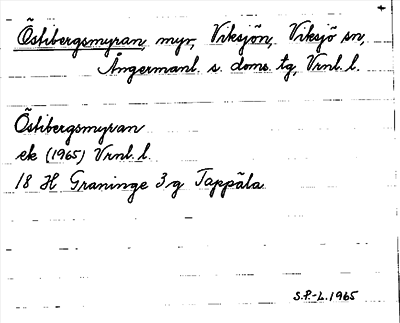 Östibergsmyran, myr, Viksjön, Viksjö sn,
Ångermanl. s. doms. tg, Vrnl. l.
Östibergsmyran
ek (1965) Vrnl. l.
18 H Graninge 3 g Tappåla
S.P.-L. 1965